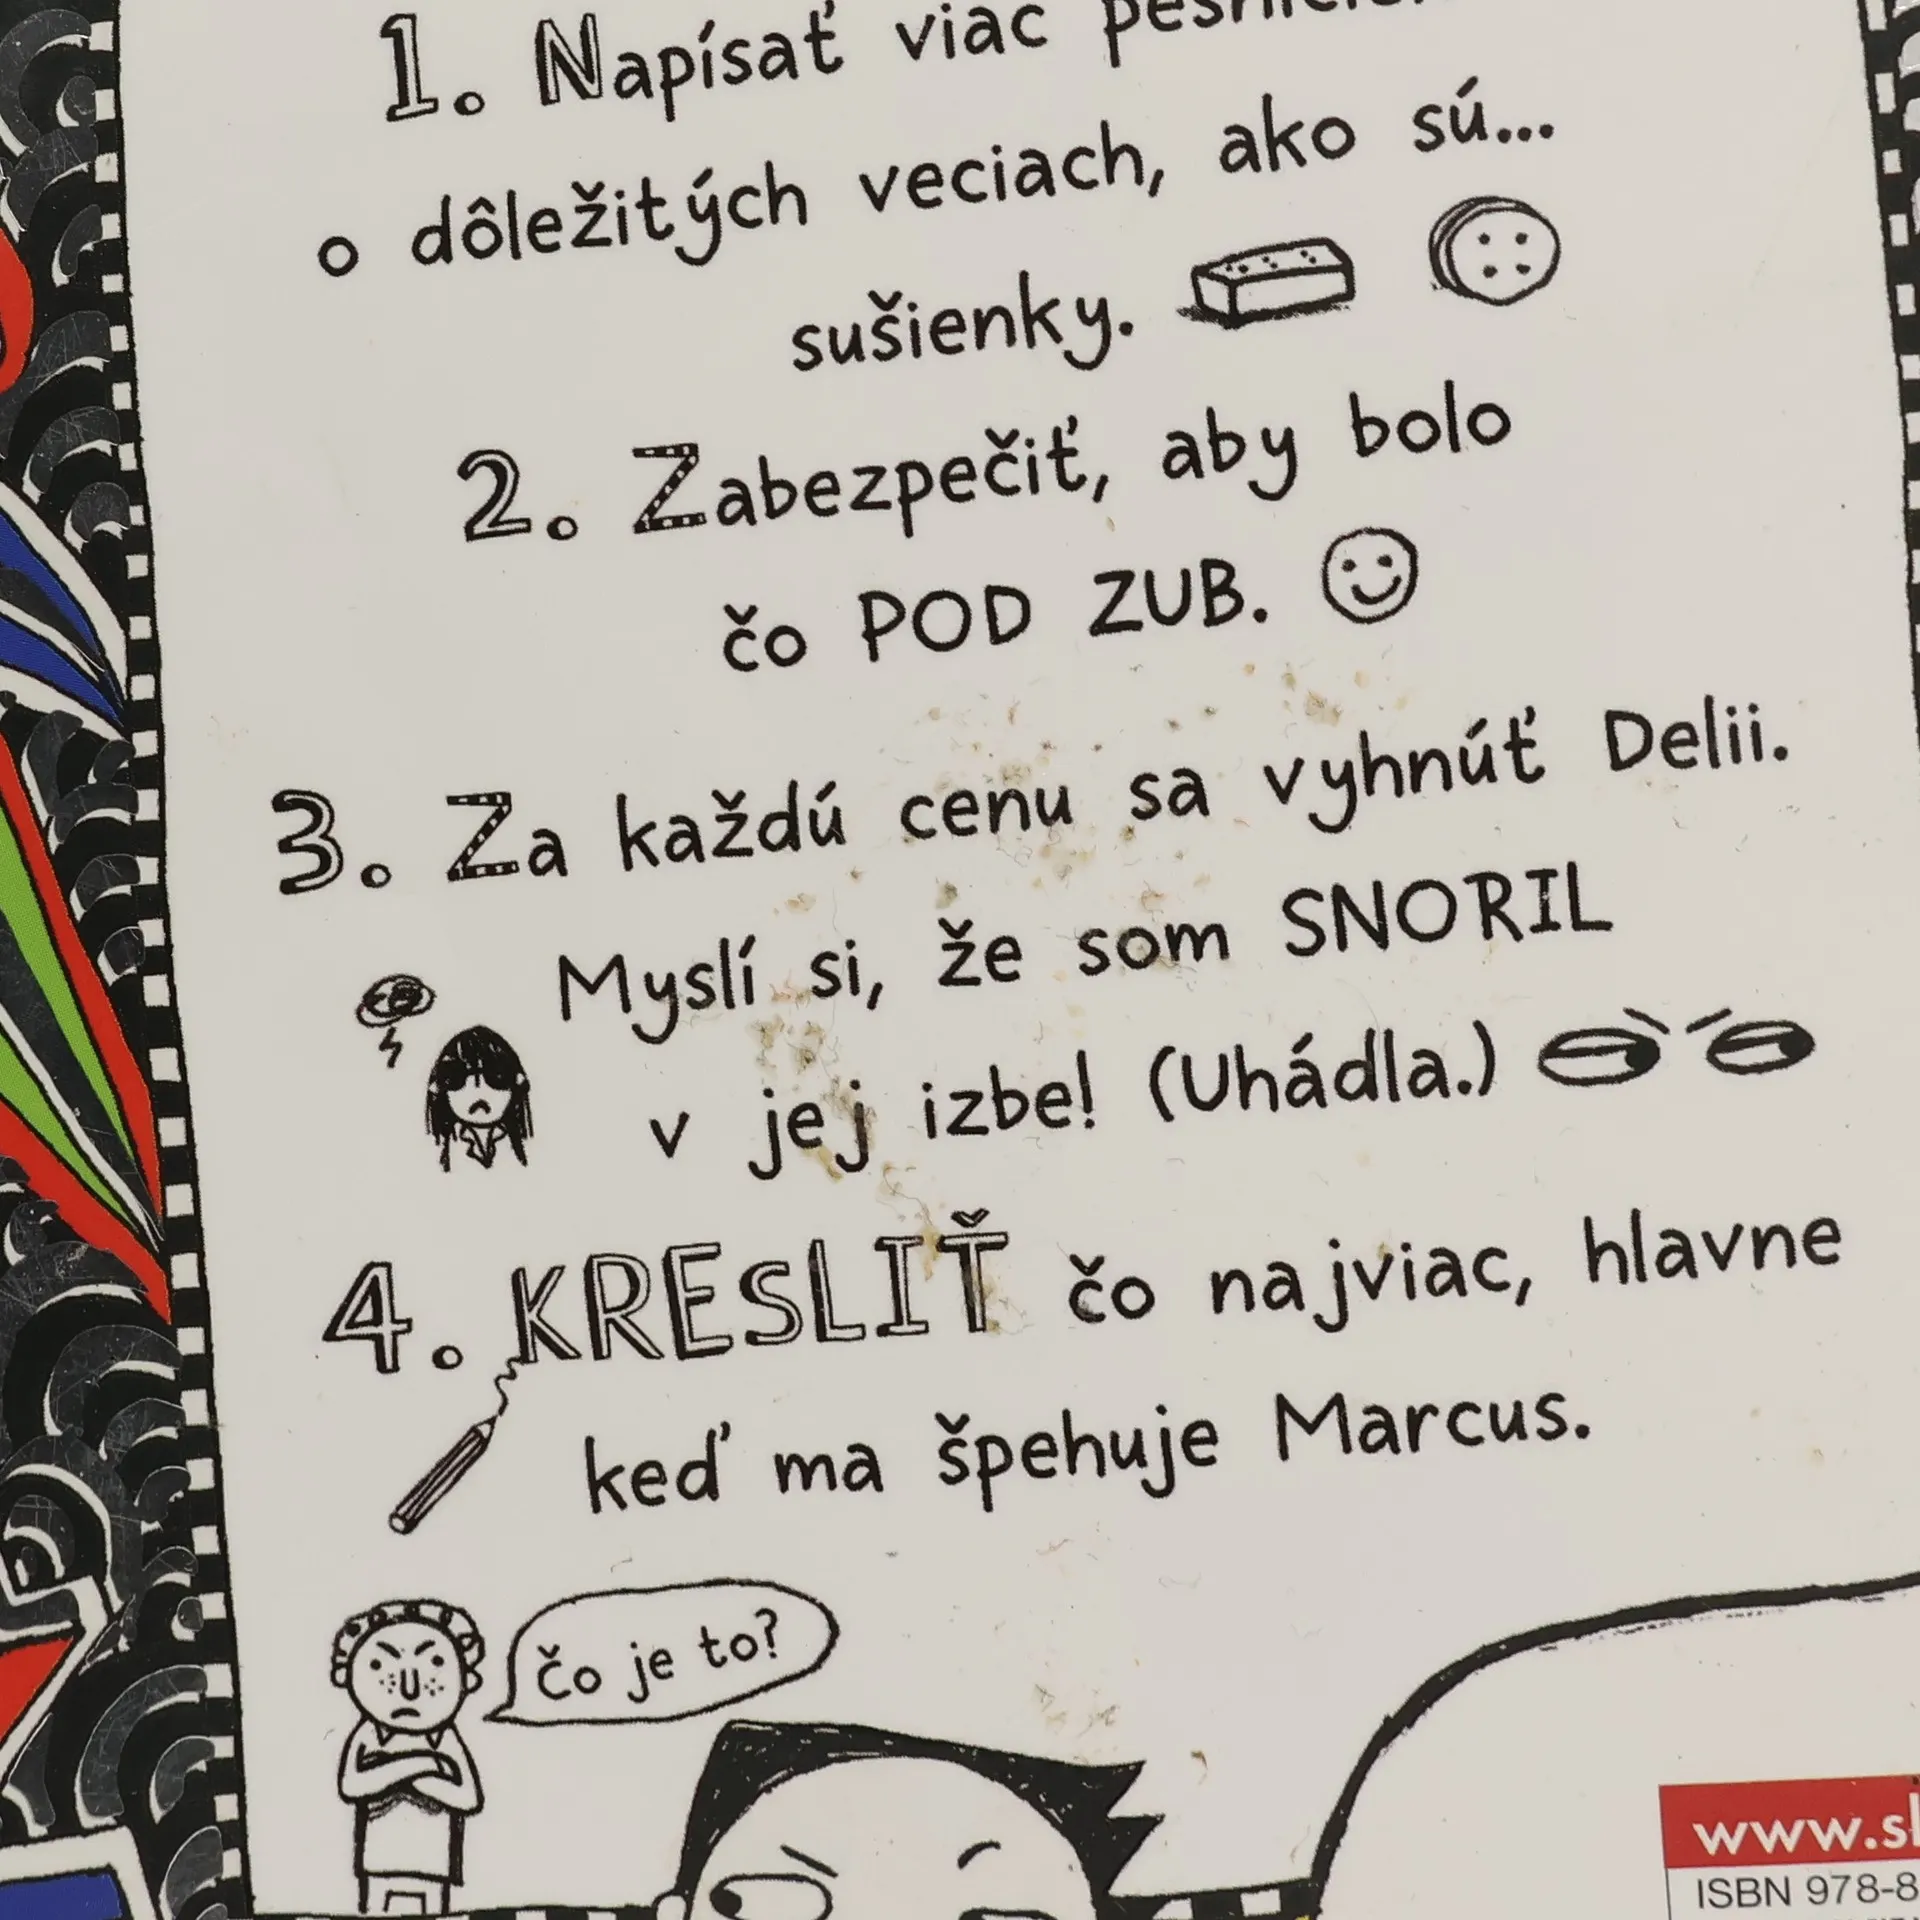 1. Napísať viac
o dôležitých veciach, ako sú...
sušienky.
2. Zabezpečiť, aby bolo
čo POD ZUB.
3. Za každú cenu sa vyhnúť Delii.
Myslí si, že som SNORIL
v jej izbe! (Uhádla.)
4. KRESLIŤ čo najviac, hlavne
keď ma špehuje Marcus.
Čo je to?
www.sl
ISBN 978-8